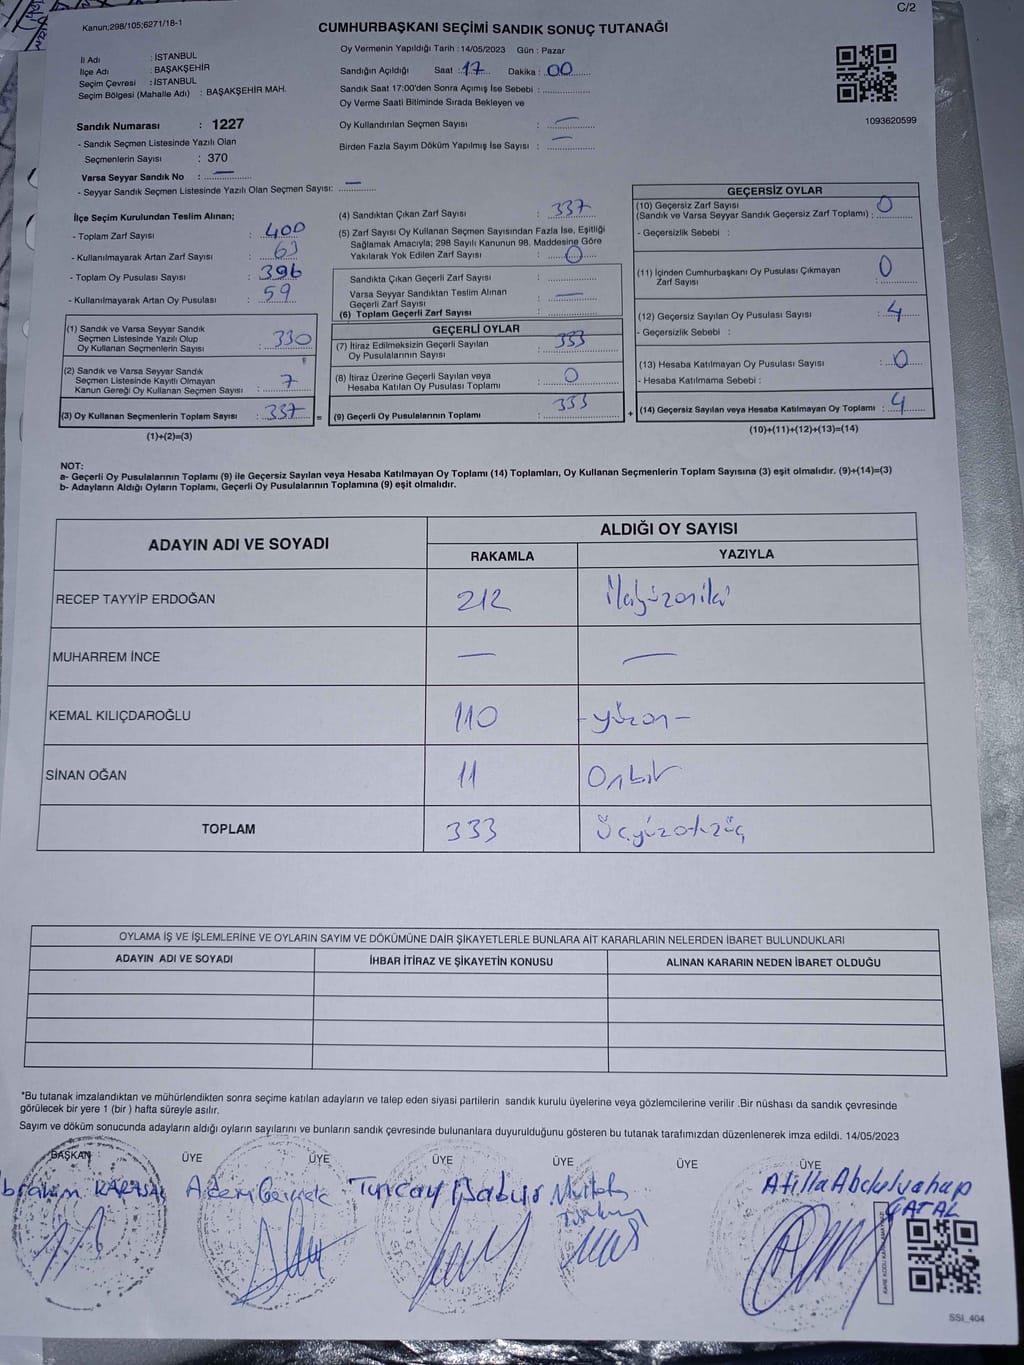 C/2
Kanun;298/105;6271/18-1
CUMHURBAŞKANI SEÇİMİ SANDIK SONUÇ TUTANAĞI
İl Adı : İSTANBUL
İlçe Adı : BAŞAKŞEHİR
Seçim Çevresi : İSTANBUL
Seçim Bölgesi (Mahalle Adı) : BAŞAKŞEHİR MAH.
Oy Vermenin Yapıldığı Tarih : 14/05/2023 Gün : Pazar
Sandığın Açıldığı Saat : 17 Dakika : 00
Sandık Saat 17:00'den Sonra Açımış İse Sebebi :
Oy Verme Saati Bitiminde Sırada Bekleyen ve
Oy Kullandırılan Seçmen Sayısı : —
Birden Fazla Sayım Döküm Yapılmış İse Sayısı : —
1093620599
Sandık Numarası : 1227
- Sandık Seçmen Listesinde Yazılı Olan
Seçmenlerin Sayısı : 370
Varsa Seyyar Sandık No : —
- Seyyar Sandık Seçmen Listesinde Yazılı Olan Seçmen Sayısı: —
İlçe Seçim Kurulundan Teslim Alınan;
- Toplam Zarf Sayısı : 400
- Kullanılmayarak Artan Zarf Sayısı : 63
- Toplam Oy Pusulası Sayısı : 396
- Kullanılmayarak Artan Oy Pusulası : 59
(1) Sandık ve Varsa Seyyar Sandık
Seçmen Listesinde Yazılı Olup
Oy Kullanan Seçmenlerin Sayısı : 330
(2) Sandık ve Varsa Seyyar Sandık
Seçmen Listesinde Kayıtlı Olmayan
Kanun Gereği Oy Kullanan Seçmen Sayısı : 7
(3) Oy Kullanan Seçmenlerin Toplam Sayısı : 337 =
(1)+(2)=(3)
(4) Sandıktan Çıkan Zarf Sayısı : 337
(5) Zarf Sayısı Oy Kullanan Seçmen Sayısından Fazla İse, Eşitliği
Sağlamak Amacıyla; 298 Sayılı Kanunun 98. Maddesine Göre
Yakılarak Yok Edilen Zarf Sayısı : 0
Sandıkta Çıkan Geçerli Zarf Sayısı :
Varsa Seyyar Sandıktan Teslim Alınan
Geçerli Zarf Sayısı : —
(6) Toplam Geçerli Zarf Sayısı :
GEÇERLİ OYLAR
(7) İtiraz Edilmeksizin Geçerli Sayılan
Oy Pusulalarının Sayısı : 333
(8) İtiraz Üzerine Geçerli Sayılan veya
Hesaba Katılan Oy Pusulası Toplamı : 0
(9) Geçerli Oy Pusulalarının Toplamı : 333 +
GEÇERSİZ OYLAR
(10) Geçersiz Zarf Sayısı
(Sandık ve Varsa Seyyar Sandık Geçersiz Zarf Toplamı) : 0
- Geçersizlik Sebebi :
(11) İçinden Cumhurbaşkanı Oy Pusulası Çıkmayan
Zarf Sayısı : 0
(12) Geçersiz Sayılan Oy Pusulası Sayısı : 4
- Geçersizlik Sebebi :
(13) Hesaba Katılmayan Oy Pusulası Sayısı : 0
- Hesaba Katılmama Sebebi :
(14) Geçersiz Sayılan veya Hesaba Katılmayan Oy Toplamı : 4
(10)+(11)+(12)+(13)=(14)
NOT:
a- Geçerli Oy Pusulalarının Toplamı (9) ile Geçersiz Sayılan veya Hesaba Katılmayan Oy Toplamı (14) Toplamları, Oy Kullanan Seçmenlerin Toplam Sayısına (3) eşit olmalıdır. (9)+(14)=(3)
b- Adayların Aldığı Oyların Toplamı, Geçerli Oy Pusulalarının Toplamına (9) eşit olmalıdır.
ADAYIN ADI VE SOYADI
ALDIĞI OY SAYISI
RAKAMLA YAZIYLA
RECEP TAYYİP ERDOĞAN 212 ikiyüzoniki
MUHARREM İNCE — —
KEMAL KILIÇDAROĞLU 110 -yüzon-
SİNAN OĞAN 11 Onbir
TOPLAM 333 Üçyüzotuzüç
OYLAMA İŞ VE İŞLEMLERİNE VE OYLARIN SAYIM VE DÖKÜMÜNE DAİR ŞİKAYETLERLE BUNLARA AİT KARARLARIN NELERDEN İBARET BULUNDUKLARI
ADAYIN ADI VE SOYADI İHBAR İTİRAZ VE ŞİKAYETİN KONUSU ALINAN KARARIN NEDEN İBARET OLDUĞU
*Bu tutanak imzalandıktan ve mühürlendikten sonra seçime katılan adayların ve talep eden siyasi partilerin sandık kurulu üyelerine veya gözlemcilerine verilir .Bir nüshası da sandık çevresinde
görülecek bir yere 1 (bir ) hafta süreyle asılır.
Sayım ve döküm sonucunda adayların aldığı oyların sayılarını ve bunların sandık çevresinde bulunanlara duyurulduğunu gösteren bu tutanak tarafımızdan düzenlenerek imza edildi. 14/05/2023
BAŞKAN ÜYE ÜYE ÜYE ÜYE ÜYE ÜYE
Adem Tuncay Atilla Abdulvahap
ÇATAL
SSI_404